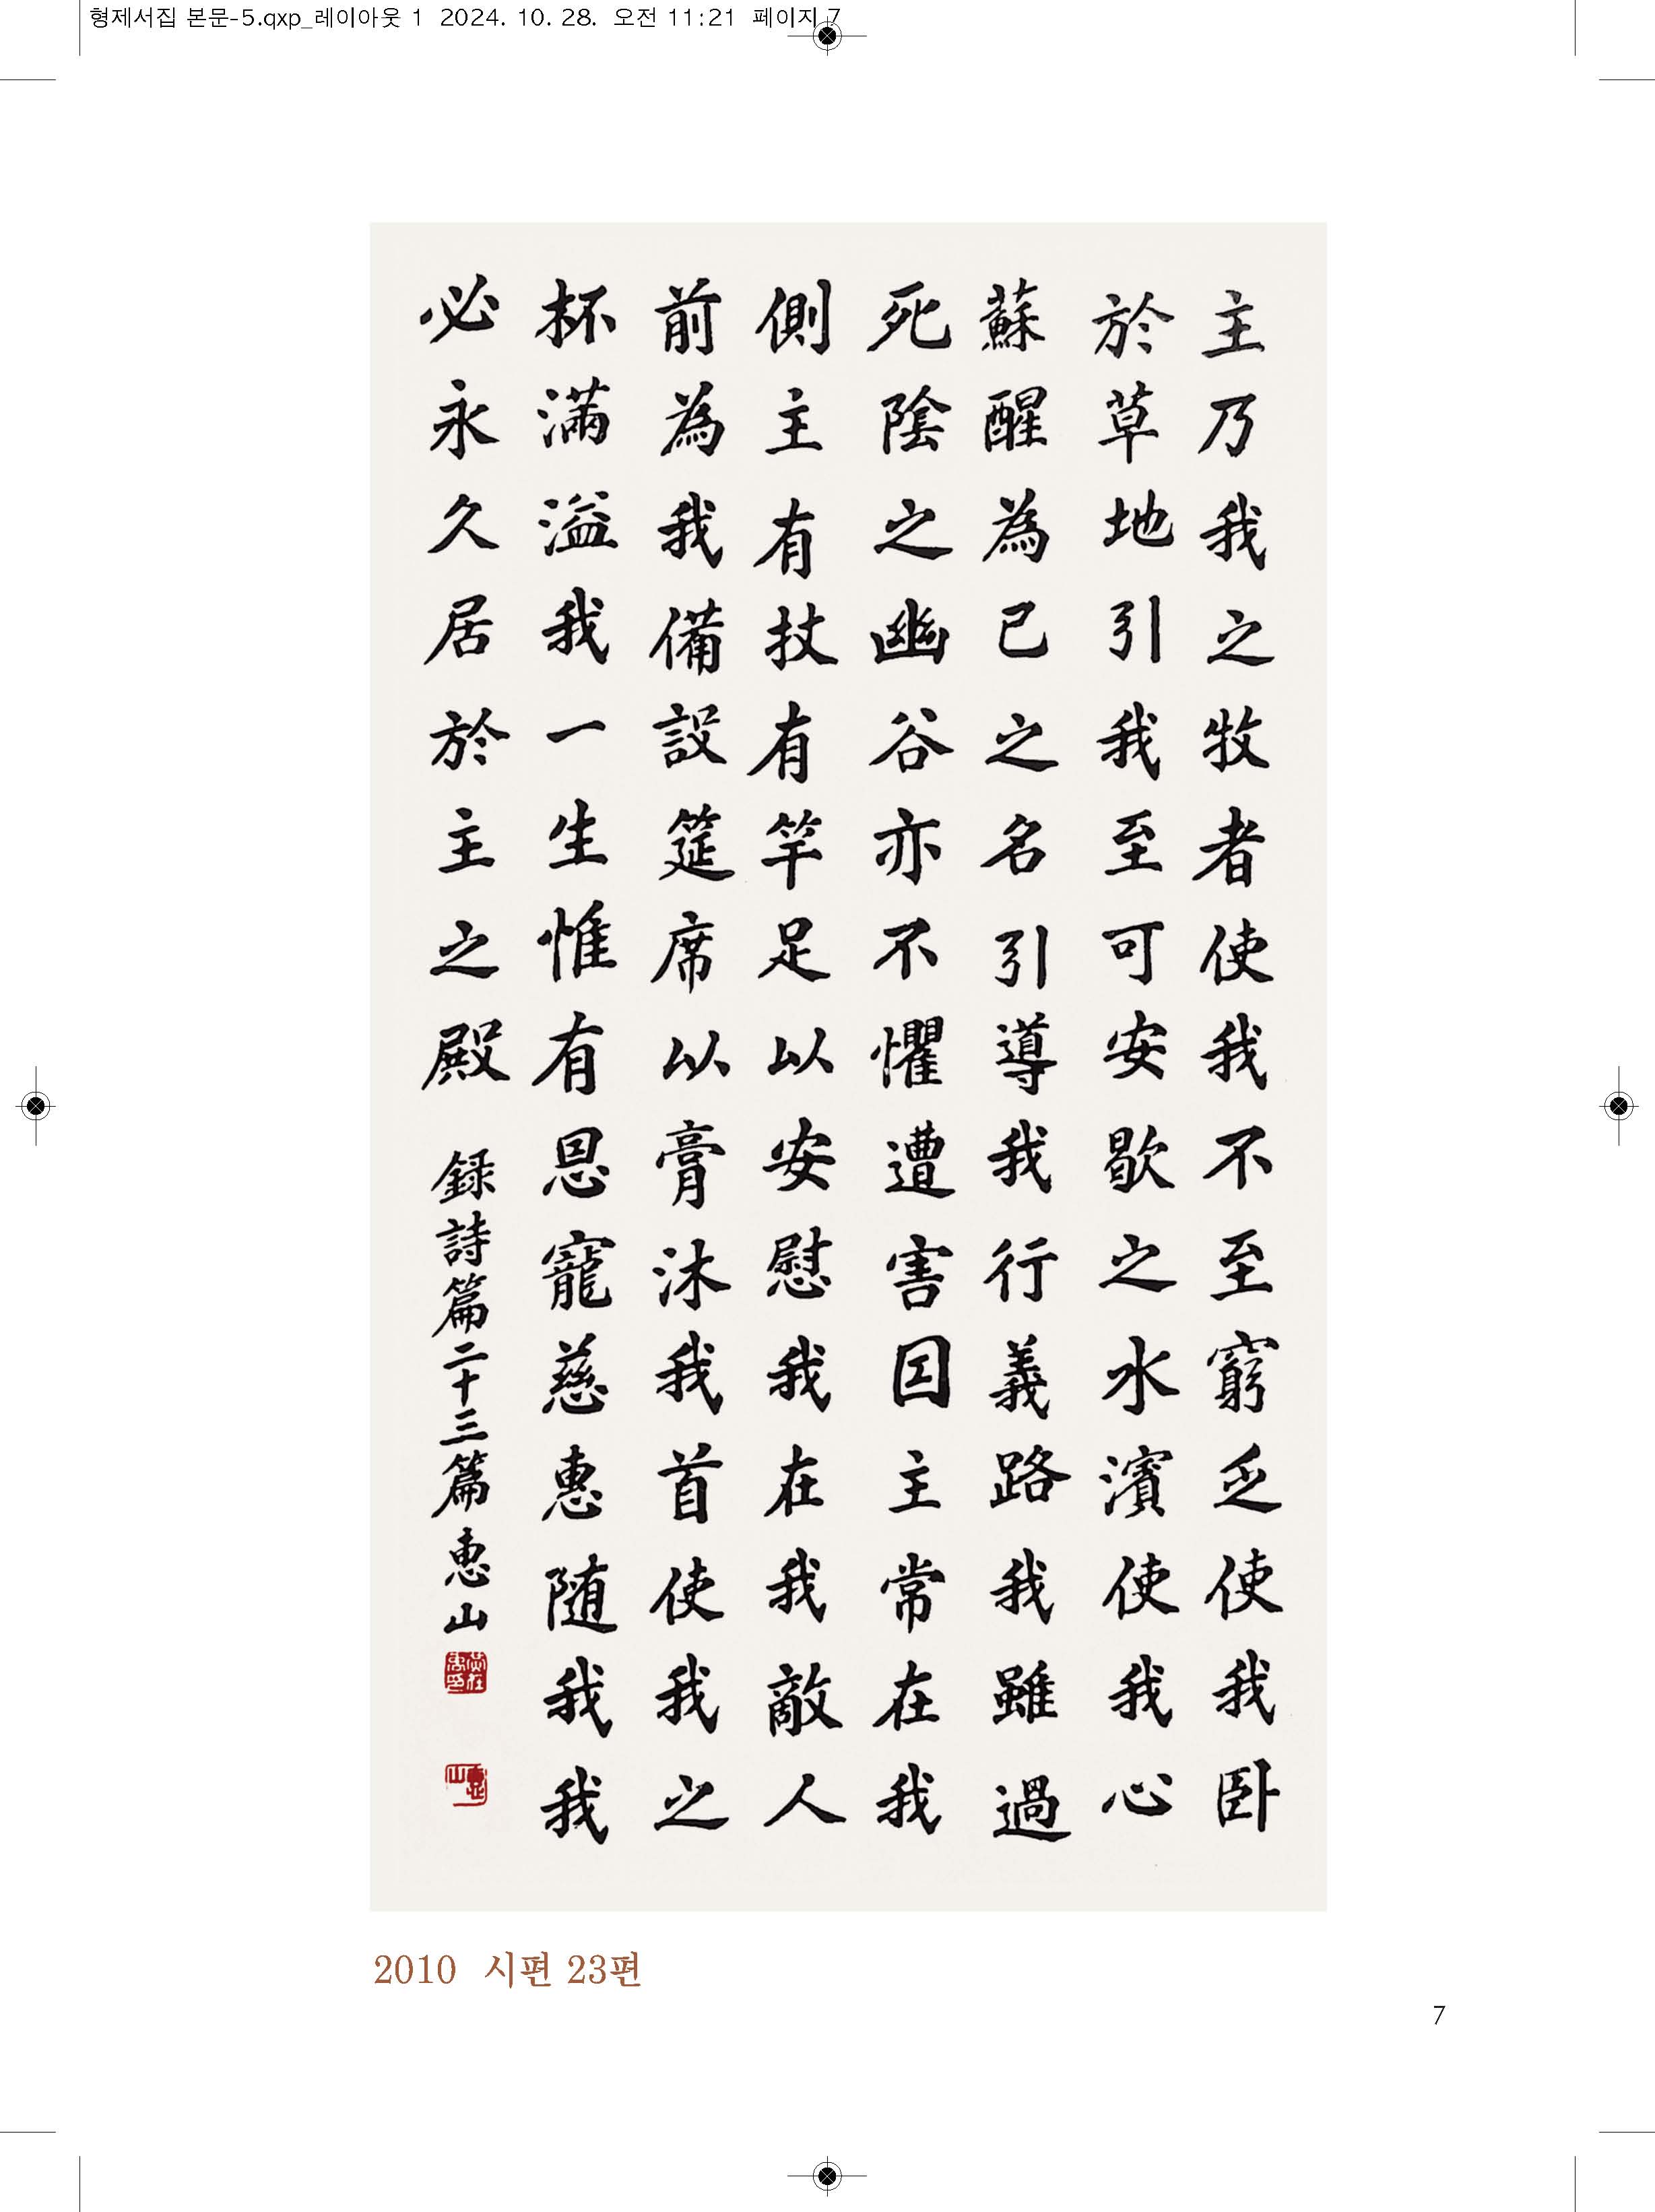 형제서집 본문-5.qxp_레이아웃 1  2024. 10. 28.  오전 11:21  페이지 7
主乃我之牧者使我不至窮乏使我臥
於草地引我至可安歇之水濱使我心
蘇醒為己之名引導我行義路我雖過
死陰之幽谷亦不懼遭害因主常在我
側主有杖有竿足以安慰我在我敵人
前為我備設筵席以膏沐我首使我之
杯滿溢我一生惟有恩寵慈惠随我我
必永久居於主之殿 錄詩篇二十三篇 惠山
2010 시편 23편
7